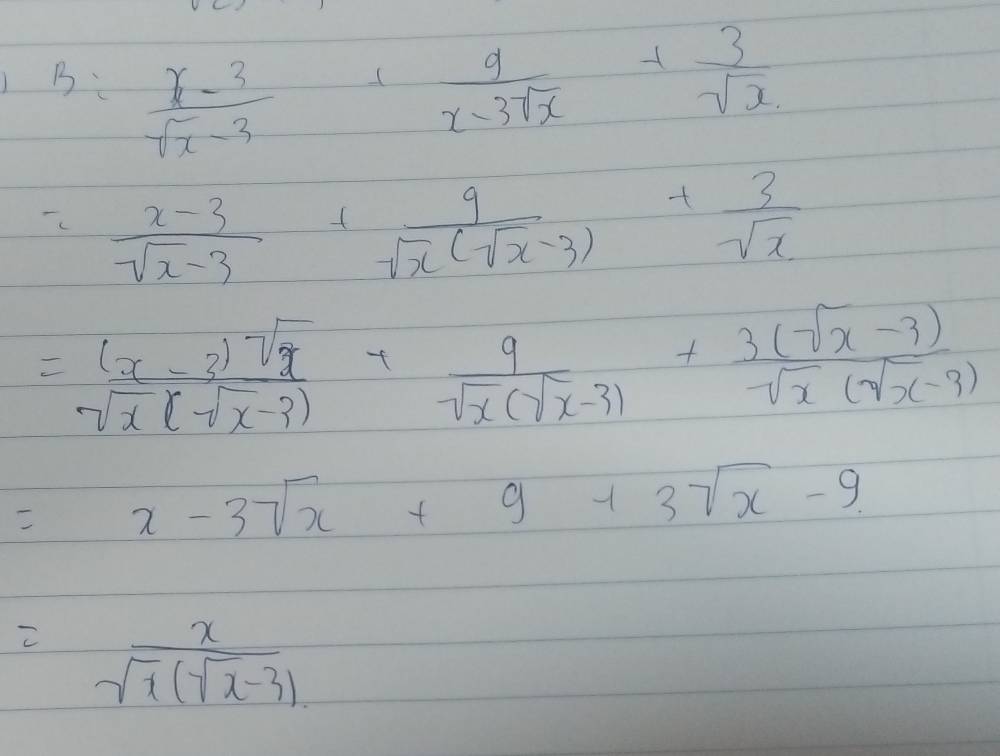 B: \frac{x-3}{\sqrt{x}-3} + \frac{9}{x-3\sqrt{x}} + \frac{3}{\sqrt{x}}
= \frac{x-3}{\sqrt{x}-3} + \frac{9}{\sqrt{x}(\sqrt{x}-3)} + \frac{3}{\sqrt{x}}
= \frac{(x-3)\sqrt{x}}{\sqrt{x}(\sqrt{x}-3)} + \frac{9}{\sqrt{x}(\sqrt{x}-3)} + \frac{3(\sqrt{x}-3)}{\sqrt{x}(\sqrt{x}-3)}
= x-3\sqrt{x} + 9 + 3\sqrt{x} - 9
= \frac{x}{\sqrt{x}(\sqrt{x}-3)}